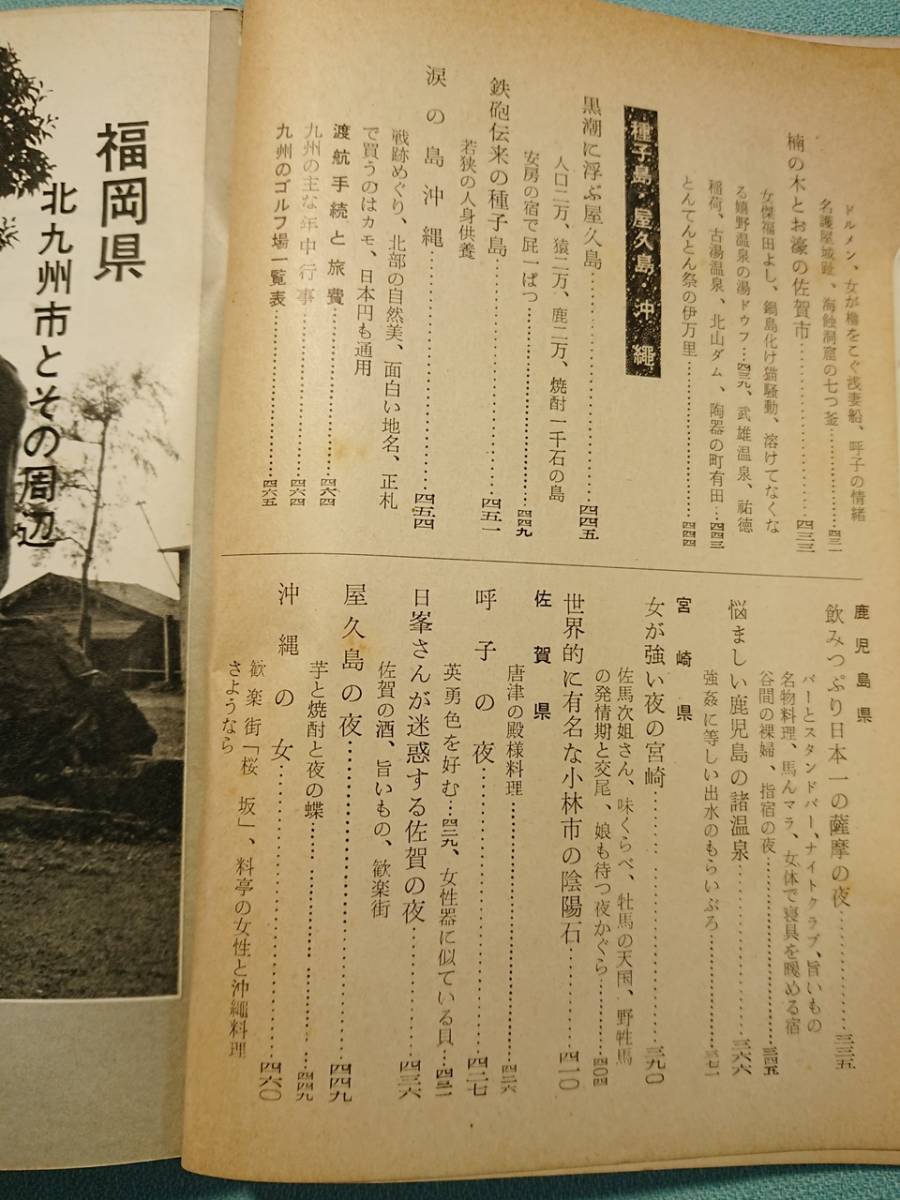 ドルメン、女が櫓をこぐ浅妻船、呼子の情緒
名護屋城趾、海蝕洞窟の七つ釜…………四三一
楠の木とお濠の佐賀市…………四三三
女傑福田よし、鍋島化け猫騒動、溶けてなくな
る嬉野温泉の湯ドウフ…四三九、武雄温泉、祐徳
稲荷、古湯温泉、北山ダム、陶器の町有田…四四三
とんてんとん祭の伊万里…………四四四
種子島・屋久島・沖繩
黒潮に浮ぶ屋久島…………四四五
人口二万、猿二万、鹿二万、焼酎一千石の島
安房の宿で屁一ぱつ…………四四九
鉄砲伝来の種子島…………四五一
若狭の人身供養
涙の島沖縄…………四五四
戦跡めぐり、北部の自然美、面白い地名、正札
で買うのはカモ、日本円も通用
渡航手続と旅費…………四六四
九州の主な年中行事…………四六四
九州のゴルフ場一覧表…………四六五
鹿児島県
飲みつぷり日本一の薩摩の夜…………三三五
バーとスタンドバー、ナイトクラブ、旨いもの
名物料理、馬んマラ、女体で寝具を暖める宿
谷間の裸婦、指宿の夜…………三四五
悩ましい鹿児島の諸温泉…………三六六
強姦に等しい出水のもらいぶろ…………三七一
宮崎県
女が強い夜の宮崎…………三九〇
佐馬次姐さん、味くらべ、牡馬の天国、野牲馬
の発情期と交尾、娘も待つ夜かぐら…………四〇四
世界的に有名な小林市の陰陽石…………四一〇
佐賀県
唐津の殿様料理…………四二六
呼子の夜…………四二七
英勇色を好む…四二九、女性器に似ている貝…四三二
日峯さんが迷惑する佐賀の夜…………四三六
佐賀の酒、旨いもの、歓楽街
屋久島の夜…………四四九
芋と焼酎と夜の蝶…………四四九
沖縄の女…………四六〇
歓楽街「桜坂」、料亭の女性と沖縄料理
さようなら
福岡県
北九州市とその周辺